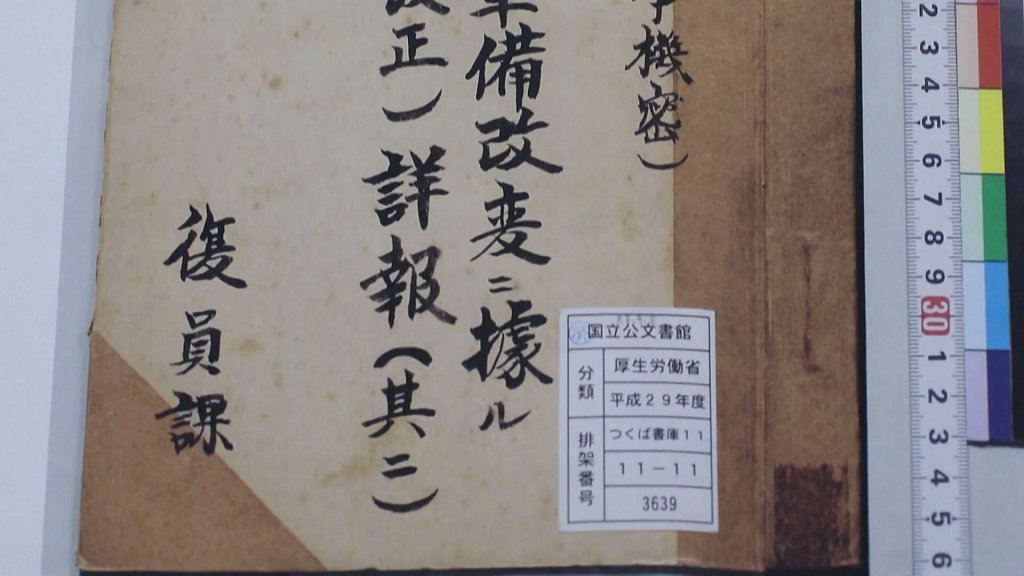 機密）
備改変ニ據ル
正）詳報（其二）
復員課
国立公文書館
分類
厚生労働省
平成29年度
排架番号
つくば書庫11
11-11
3639
2 3 4 5 6 7 8 9 30 1 2 3 4 5 6